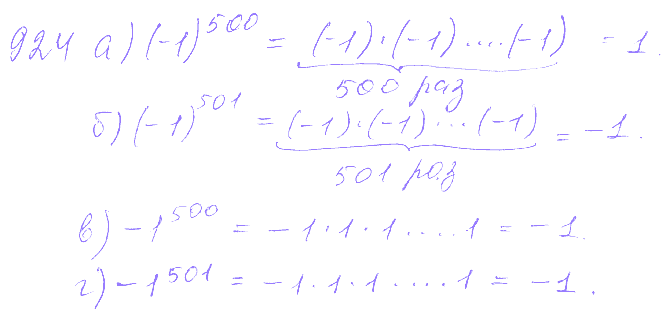 924 а) (-1)^500 = (-1)·(-1)·...·(-1) = 1.
500 раз
б) (-1)^501 = (-1)·(-1)·...(-1) = -1.
501 раз
в) -1^500 = -1·1·1·...·1 = -1.
г) -1^501 = -1·1·1·...·1 = -1.